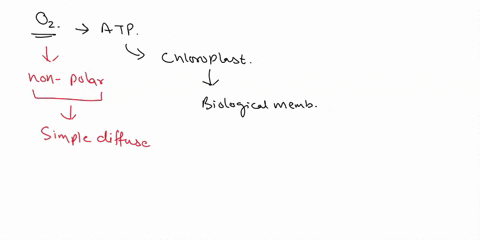 O2. → ATP.
↓ ↳ Chloroplast.
non-polar ↓
↓ Biological memb.
Simple diffuse